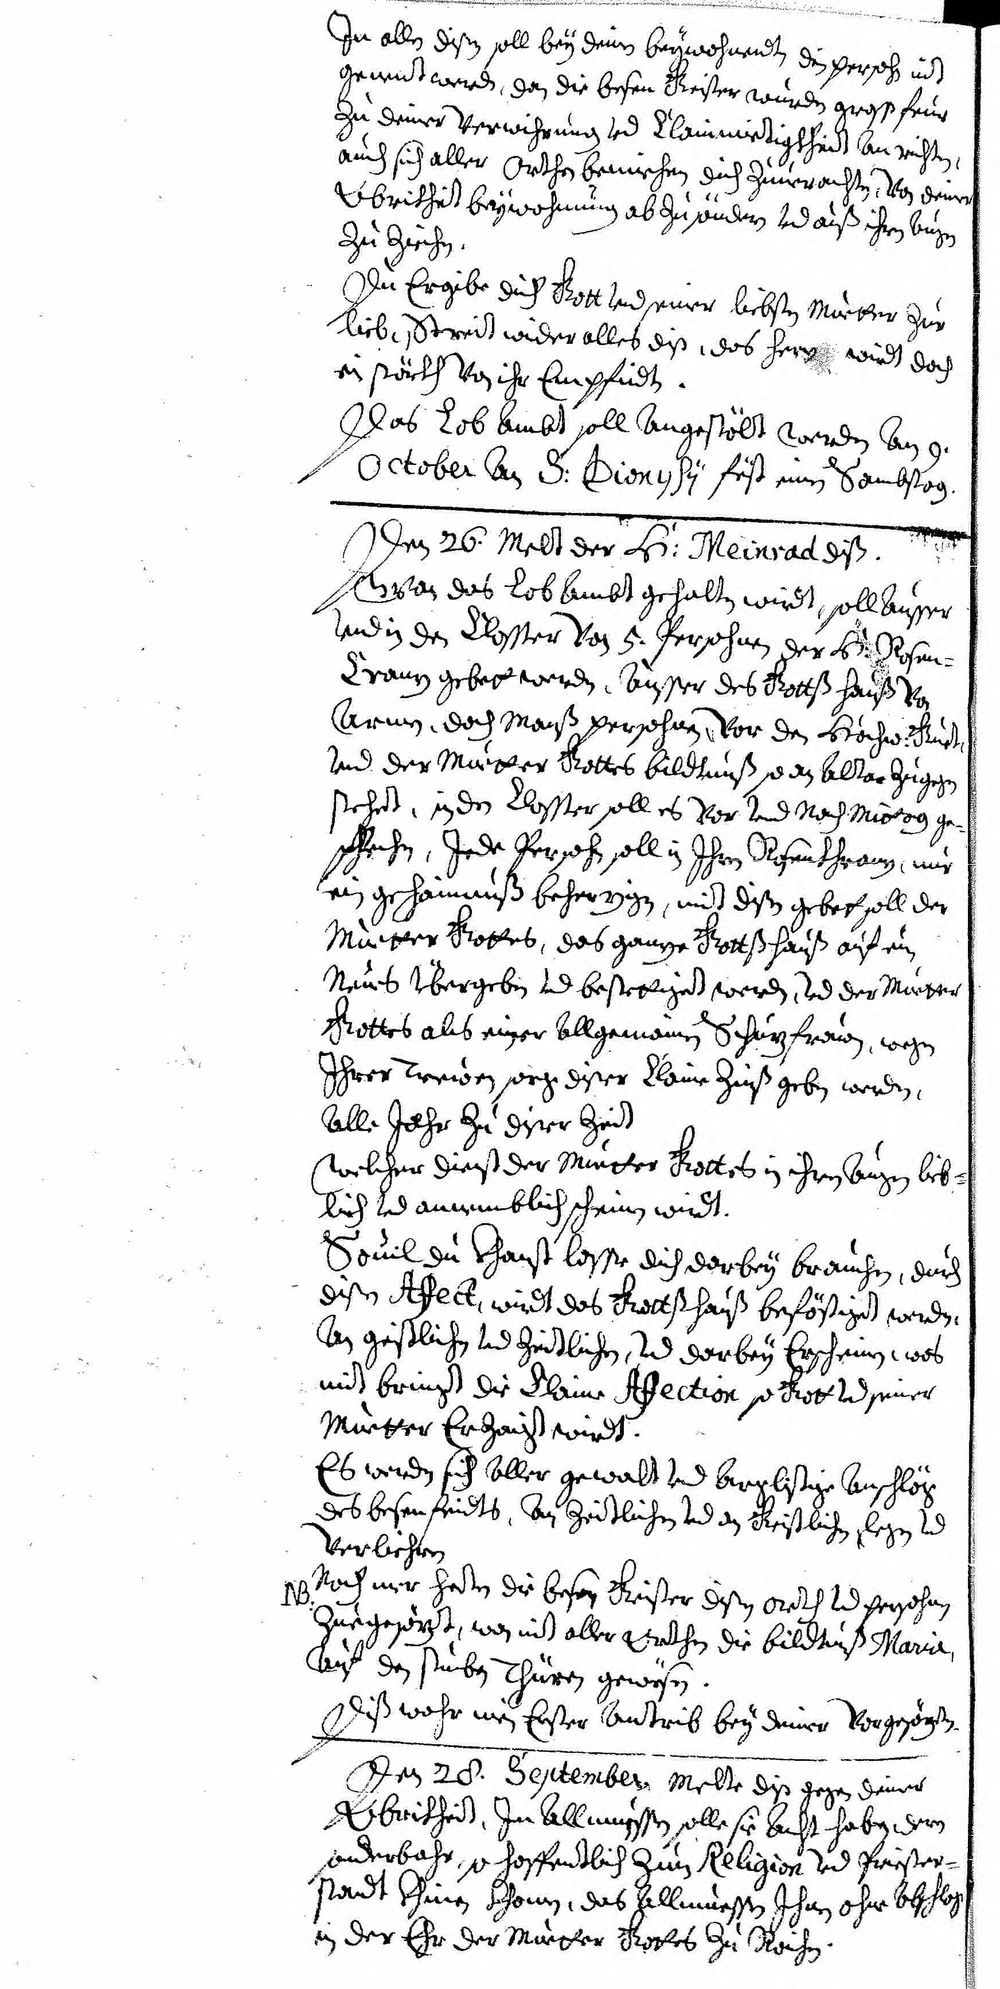 In allen disen soll bey deinen beywohnendten die persohn nit
genent werden, dan die besen Geister wurden gross feur
zu deiner Verwihrung und Clainmietigkheit an richten,
auch sich aller Orthen bemiehen dich zuverachten, Von deiner
Obrikheit beywohnung ab zusöndern und auß ihren augen
zu ziechen.
Du Ergibe dich Gott und seiner liebsten Muetter zur
lieb, Streit wider alles diß, das herz wirdt doch
ein störkh von ihr Empfindten.
Das Lob Ambt soll angestölt werden am 9.
October an S: Dionysÿ fest einen Sambstag.
Den 26. Melt der H: Meinrad diß.
Wan das Lob Ambt gehalten wirdt, soll ausser
und in den Closster von 5. Persohnen der H: Rosen=
Cranz gebett werden, ausser des Gottßhauß von
Armen, doch Manß persohnen, vor den Hochw: Guet,
und der Muetter Gottes bildtnuß so an altar zugegen
stehet, in den Closster soll es vor und nach mittag ge=
schechen, Jede Persohn soll in Ihren Rosenkhranz, nur
ein gehaimnuß beherzigen, mit disen gebett soll der
Muetter Gottes, das ganze Gottßhauß auf ein
Neues Ubergeben und bestettiget werden, und der Muetter
Gottes als einer allgemainen Schuzfrauen, wegen
Ihrer treuen sorg diser Claine Zinß geben werden,
alle Jahr zu diser Zeit
welcher dienst der Muetter Gottes in ihren augen lieb=
lich und anemblich scheinen wirdt.
Sovil du khanst lasse dich darbey brauchen, durch
disen Affect, wirdt das Gottßhauß beföstiget werden,
an geistlichen und zeitlichen, und darbey Erscheinen, was
mit bringt die Claine Affection so Gott und seiner
Muetter Erzaigt wirdt.
Es werden sich aller gewalt und arglistige anschlög
des besen feindts, an zeitlichen und an Geistlichen, legen und
verliehren
NB: Noch mer heten die besen Geister disen orth und persohnen
zuegesözt, wan nit aller orthen die bildtnuß Maria,
auf den stuben thüren gewesen.
Diß wahr mein Erster antrib bey deiner vorgesözten.
Den 28. September. Melte diß gegen deiner
Obrikheit, Im allmuessen solle sie acht haben, deren
sonderbahr so hoffentlich zum Religion und Priester=
standt khinen khomen, das allmuessen Ihnen ohne abschlag
in der Ehr der Muetter Gottes zu Raichen.